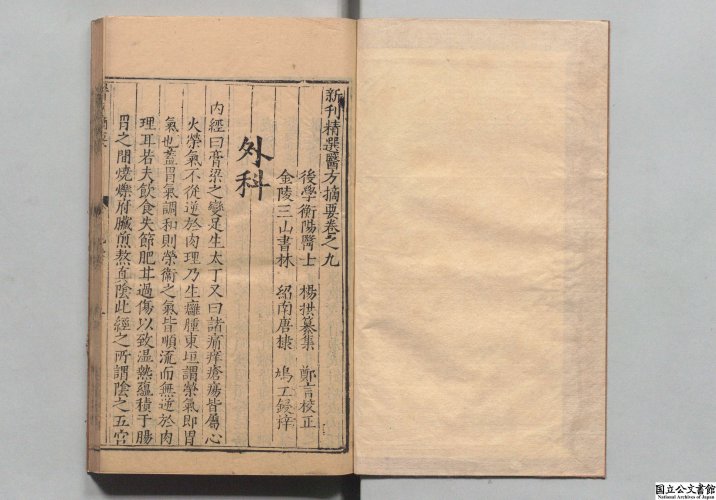 新刊精選醫方摘要卷之九
後學衡陽醫士 楊拱纂集 鄭言校正
金陵三山書林 紹南唐棣 鳩工鋟梓
外科
内經曰膏梁之變足生太丁又曰諸痛痒瘡瘍皆屬心
火榮氣不從逆於肉理乃生癰腫東垣謂榮氣即胃
氣也蓋胃氣調和則榮衛之氣皆順流而無逆於肉
理耳若夫飲食失節肥甘過傷以致温熱蘊積于腸
胃之間燒爍府臟煎熬真陰此經之所謂陰之五宫
国立公文書館
National Archives of Japan